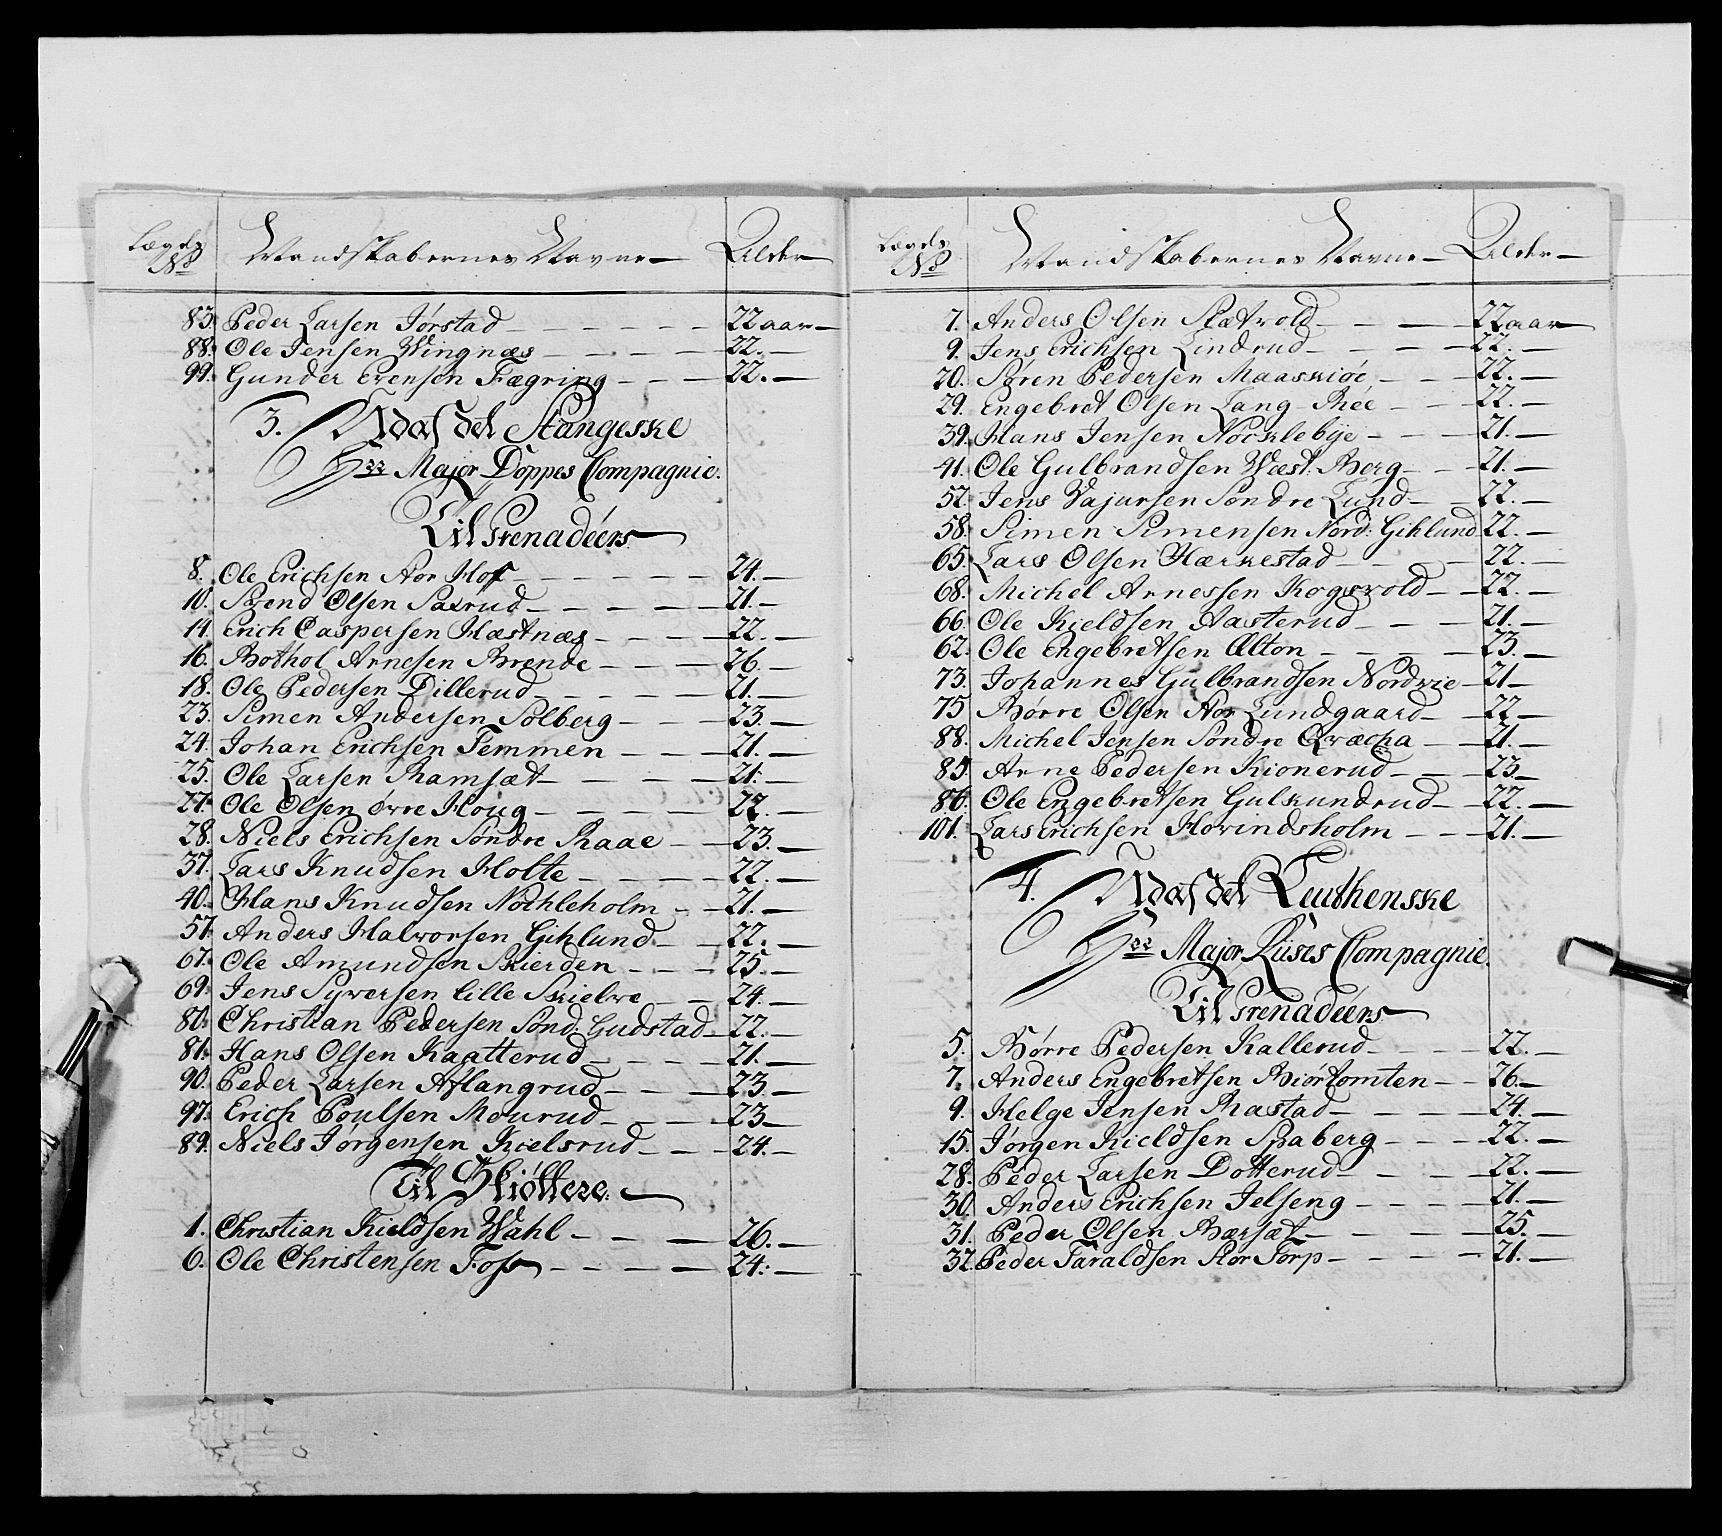 Lægds No Mandskabernes Navne Alder
83. Peder Larsen Jørstad 22 aar
88. Ole Jensen Wingnæs 22.
99. Gunder Evensen Fægring 22.
3. Udaf det Stangeske
Hrr Major Coppes Compagnie.
Til Grenadéers
8. Ole Erichsen Nor Hof 24.
10. Svend Olsen Saxrud 21.
14. Erich Caspersen Hæstnæs 22.
16. Bothol Arnesen Brende 26.
18. Ole Pedersen Dillerud 21.
23. Simen Andersen Solberg 23.
24. Johan Erichsen Temmen 21.
25. Ole Larsen Ramsæt 21.
27. Ole Olsen øvre Houg 22.
28. Niels Erichsen Søndre Raae 23.
37. Lars Knudsen Holte 22.
40. Hans Knudsen Nochleholm 21.
57. Anders Halvorsen Gihlund 22.
67. Ole Amundsen Skierden 25.
69. Jens Sywersen lille Skielve 24.
80. Christian Pedersen Sønd: Gudstad 22.
81. Hans Olsen Kaatterud 21.
90. Peder Larsen Aslangrud 23.
97. Erich Poulsen Mourud 23
89. Niels Jørgensen Kielsrud 24.
Til Skiøttere
1. Christian Kieldsen Wahl 26.
6. Ole Christensen Foss 24.
Lægds No Mandskabernes Navne Alder
7. Anders Olsen Sætvold 22 aar
9. Jens Erichsen Lindrud 22.
20. Søren Pedersen Maaskiøe 22.
29. Engebret Olsen Lang-Ree 22.
39. Hans Jensen Nocklebye 21.
41. Ole Gulbrandsen Wæst: Berg 21.
52. Jens Vajursen Søndre Lund 22.
58. Simen Simensen Nord: Gihlund 22.
65. Lars Olsen Hærkestad 22.
68. Michel Arnessen Kogsvold 22.
66. Ole Kieldsen Aasterud 21.
62. Ole Engebretsen Ælton 23.
73. Johannes Gulbrandsen Nordvie 21
75 Børre Olsen Nor Lundgaard 22
88. Michel Jensen Søndre Qvæcha 21.
85. Arne Pedersen Kionerud 23
86. Ole Engebretsen Gulkundrud 22.
101. Lars Erichsen Hovindsholm 21.
4. Udaf det Leuthenske
Hrr Major Rüses Compagnie.
Til Grenadéers
5. Børre Pedersen Kallerud 22.
7. Anders Engebretsen Biørtomten 26.
9. Helge Jensen Rastad 24.
15. Jørgen Kieldsen Spaberg 22.
28. Peder Larsen Dotterud 22.
30. Anders Erichsen Jelseng 21.
31. Peder Olsen Bærsæt 25.
32. Peder Taraldsen Stor Torp 21.